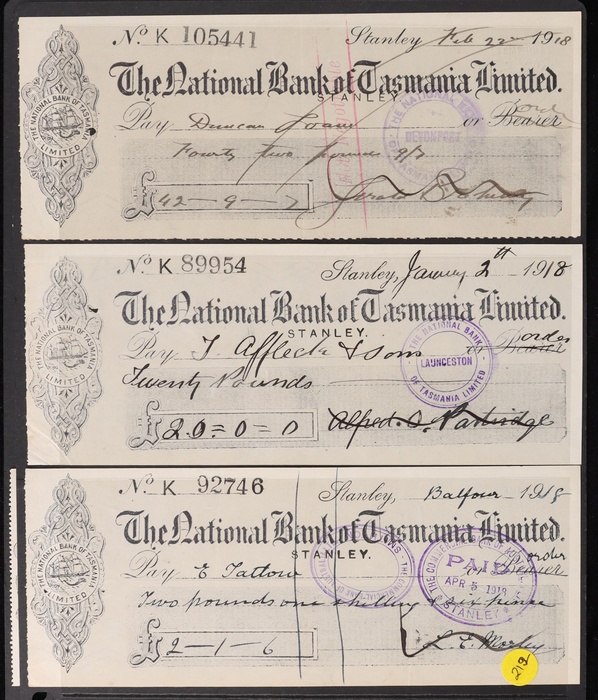 No K 105441
Stanley Feb 22nd 1918
The National Bank of Tasmania Limited.
STANLEY
Pay Duncan or Bearer
order
Fourty two pounds 9/7
£42-9-7
THE NATIONAL BANK OF TASMANIA LIMITED
DEVONPORT
THE NATIONAL BANK OF TASMANIA
LIMITED
No K 89954
Stanley, January 2nd 1918
The National Bank of Tasmania Limited.
STANLEY.
Pay T Affleck & Sons or Bearer
order
Twenty Pounds
£20=0=0
Alfred. O. Partridge
THE NATIONAL BANK
LAUNCESTON
OF TASMANIA LIMITED
THE NATIONAL BANK OF TASMANIA
LIMITED
No K 92746
Stanley, Balfour 1918
The National Bank of Tasmania Limited.
STANLEY.
Pay E Tatlow or Bearer
order
Two pounds one shilling & six pence
£2-1-6
L. E. Morley
PAID
APR 5 1918
STANLEY
THE NATIONAL BANK OF TASMANIA
LIMITED
219